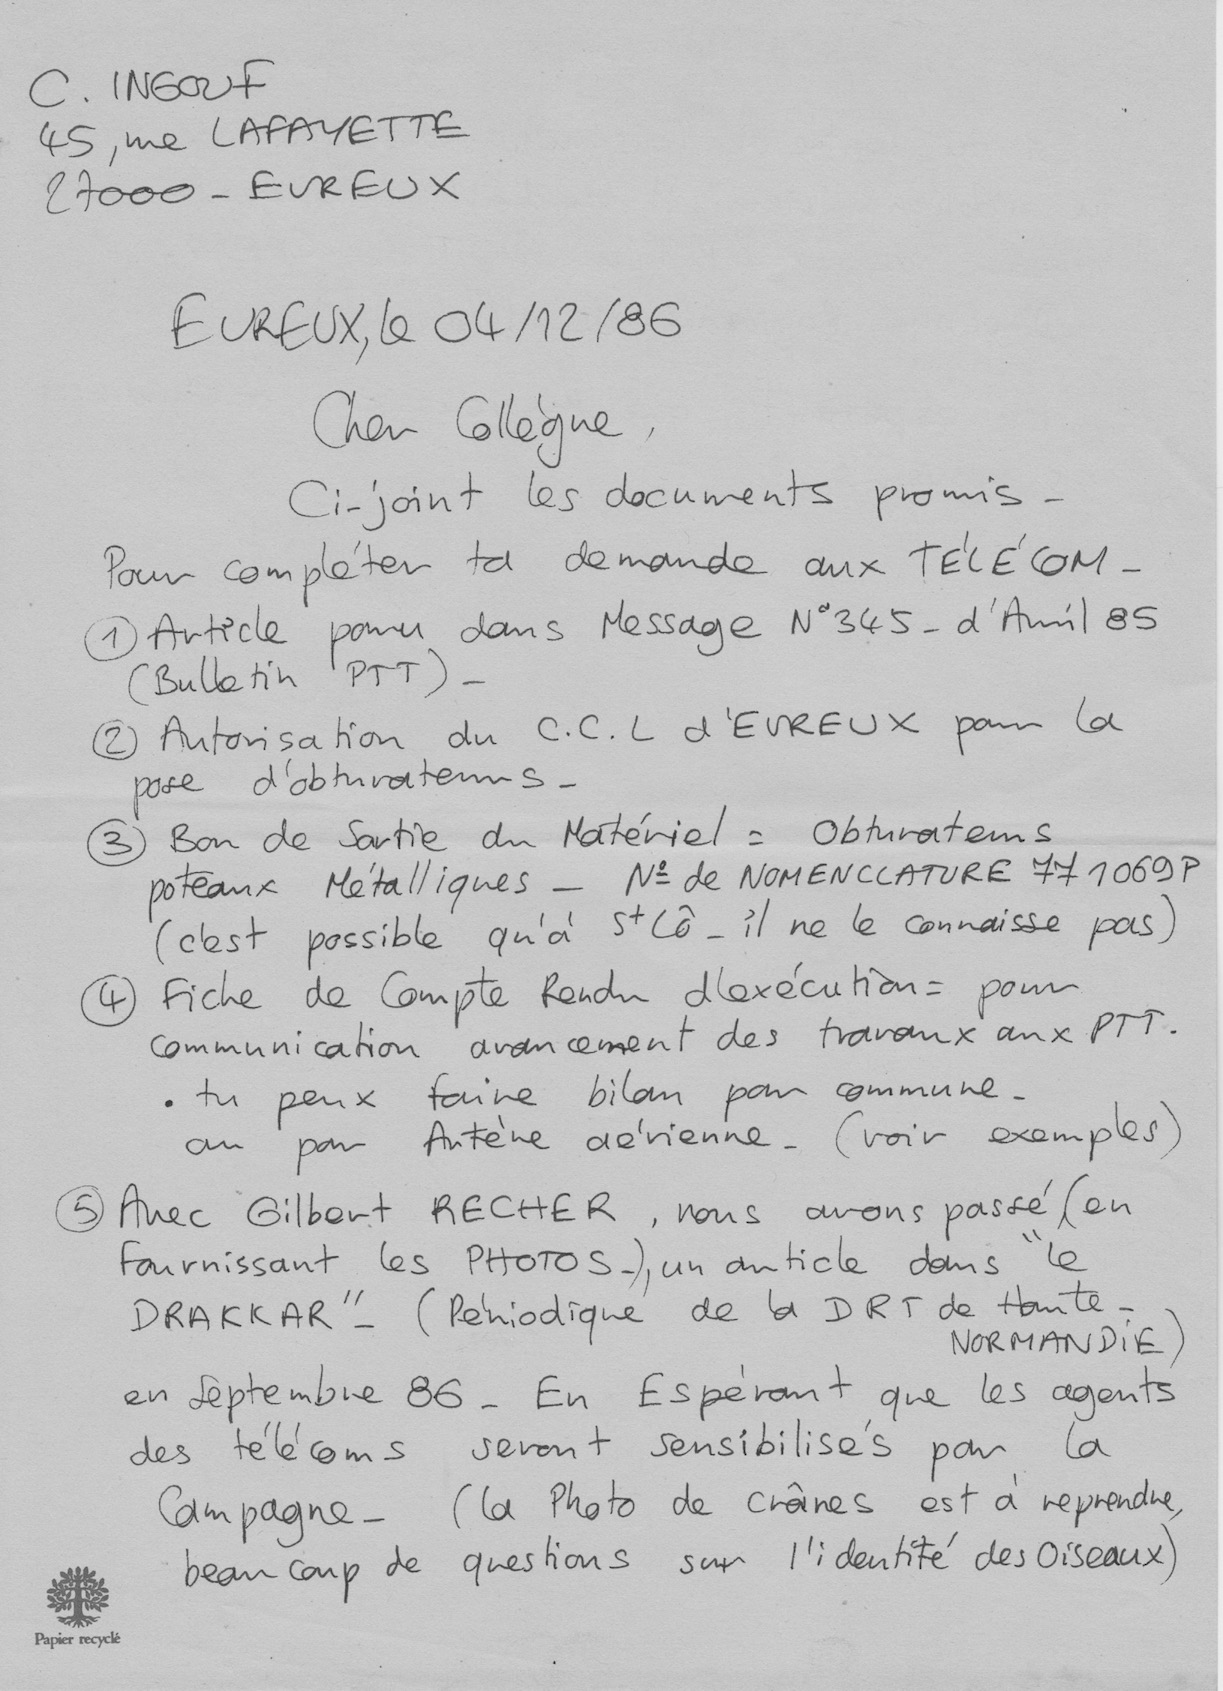 C. INGOUF
45, rue LAFAYETTE
27000 - EVREUX
EVREUX, le 04/12/86
Cher Collègue,
Ci-joint les documents promis -
Pour compléter ta demande aux TÉLÉCOM -
① Article paru dans Message N°345 - d'Avril 85
(Bulletin PTT) -
② Autorisation du C.C.L d'EVREUX pour la
pose d'obturateurs -
③ Bon de Sortie du Matériel = Obturateurs
poteaux Métalliques - Nº de NOMENCLATURE 77 1069P
(c'est possible qu'à St Lô - il ne le connaisse pas)
④ Fiche de Compte Rendu d'exécution = pour
communication avancement des travaux aux PTT.
• tu peux faire bilan par commune -
ou par Artère aérienne - (voir exemples)
⑤ Avec Gilbert RECHER, nous avons passé (en
fournissant les PHOTOS -), un article dans "le
DRAKKAR" - (Périodique de la DRT de Haute -
NORMANDIE)
en Septembre 86 - En Espérant que les agents
des télécoms seront sensibilisés par la
Campagne - (la Photo de crânes est à reprendre,
beaucoup de questions sur l'identité des Oiseaux)
Papier recyclé